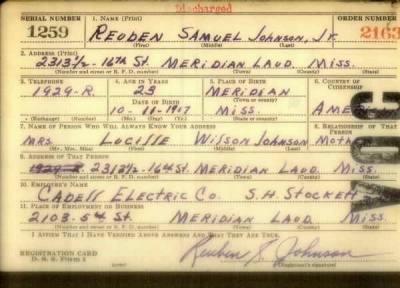 Discharged
SERIAL NUMBER 1. NAME (Print) ORDER NUMBER
1259 REUBEN SAMUEL JOHNSON, JR. 2163
(First) (Middle) (Last)
2. ADDRESS (Print)
2313½ - 16th ST. MERIDIAN LAUD. MISS.
(Number and street or R. F. D. number) (Town) (County) (State)
3. TELEPHONE 4. AGE IN YEARS 5. PLACE OF BIRTH 6. COUNTRY OF CITIZENSHIP
1929-R. 23 MERIDIAN
DATE OF BIRTH (Town or county)
MISS.
(Exchange) (Number) (Mo.) (Day) (Yr.) (State or country)
7. NAME OF PERSON WHO WILL ALWAYS KNOW YOUR ADDRESS 8. RELATIONSHIP OF THAT PERSON
MRS. LUCILLE WILSON JOHNSON MOTH
(Mr., Mrs., Miss) (First) (Middle) (Last)
9. ADDRESS OF THAT PERSON
1929-R 2313½ - 16th ST. MERIDIAN LAUD. MISS.
(Number and street or R. F. D. number) (Town) (County) (State)
10. EMPLOYER'S NAME
CADELL ELECTRIC CO. S.H. STOCKETT
11. PLACE OF EMPLOYMENT OR BUSINESS
2103-5th ST. MERIDIAN LAUD. MISS.
(Number and street or R. F. D. number) (Town) (County) (State)
I AFFIRM THAT I HAVE VERIFIED ABOVE ANSWERS AND THAT THEY ARE TRUE.
REGISTRATION CARD Reuben S. Johnson
D. S. S. Form 1 (Registrant's signature)